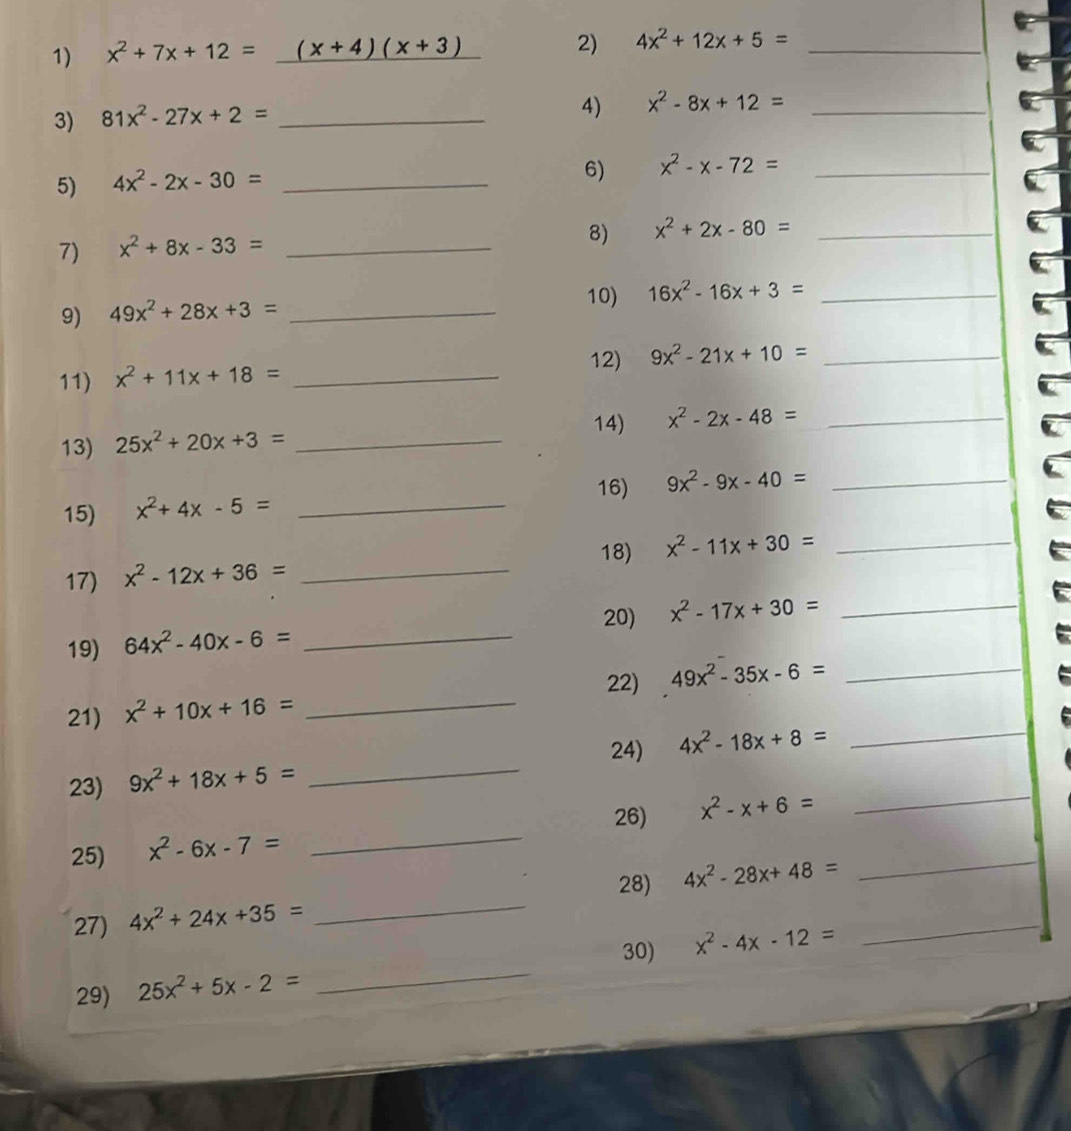 1) x² + 7x + 12 = (x + 4) (x + 3)
2) 4x² + 12x + 5 =
3) 81x² - 27x + 2 =
4) x² - 8x + 12 =
5) 4x² - 2x - 30 =
6) x² - x - 72 =
7) x² + 8x - 33 =
8) x² + 2x - 80 =
9) 49x² + 28x +3 =
10) 16x² - 16x + 3 =
11) x² + 11x + 18 =
12) 9x² - 21x + 10 =
13) 25x² + 20x +3 =
14) x² - 2x - 48 =
15) x²+ 4x - 5 =
16) 9x² - 9x - 40 =
17) x² - 12x + 36 =
18) x² - 11x + 30 =
19) 64x² - 40x - 6 =
20) x² - 17x + 30 =
21) x² + 10x + 16 =
22) 49x² - 35x - 6 =
23) 9x² + 18x + 5 =
24) 4x² - 18x + 8 =
25) x² - 6x - 7 =
26) x² - x + 6 =
27) 4x² + 24x +35 =
28) 4x² - 28x+ 48 =
29) 25x² + 5x - 2 =
30) x² - 4x - 12 =